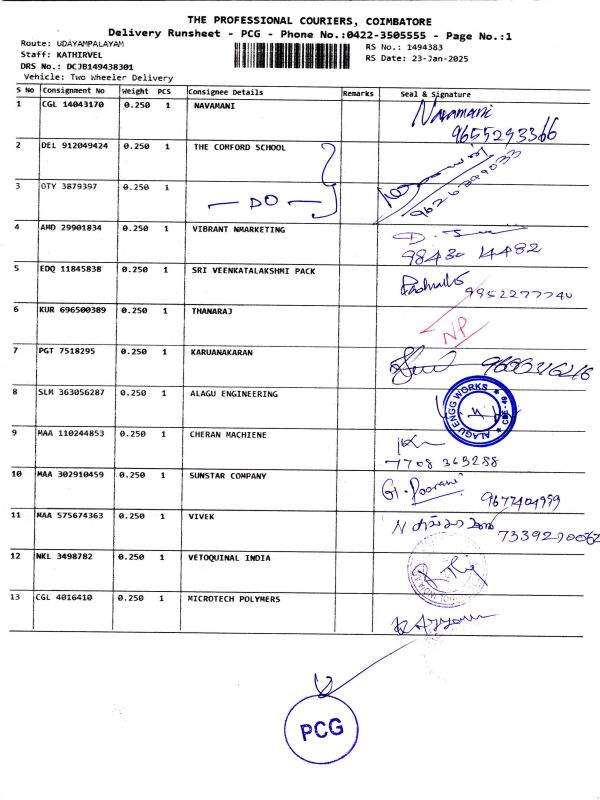 THE PROFESSIONAL COURIERS, COIMBATORE
Delivery Runsheet - PCG - Phone No.:0422-3505555 - Page No.:1
Route: UDAYAMPALAYAM
Staff: KATHIRVEL
DRS No.: DCJB149438301
Vehicle: Two Wheeler Delivery
RS No.: 1494383
RS Date: 23-Jan-2025
S No Consignment No Weight PCS Consignee Details Remarks Seal & Signature
1 CGL 14043170 0.250 1 NAVAMANI Navamani
9655293366
2 DEL 912049424 0.250 1 THE COMFORD SCHOOL
3 OTY 3879397 0.250 1 — DO —
4 AMD 29901834 0.250 1 VIBRANT NMARKETING
98430 14482
5 EDQ 11845838 0.250 1 SRI VEENKATALAKSHMI PACK
9952277740
6 KUR 696500389 0.250 1 THANARAJ NP
7 PGT 7518295 0.250 1 KARUANAKARAN 9600316216
8 SLM 363056287 0.250 1 ALAGU ENGINEERING
ALAGU ENGG WORKS
9 MAA 110244853 0.250 1 CHERAN MACHIENE
7708 363288
10 MAA 302910459 0.250 1 SUNSTAR COMPANY G. Poorani
9677404999
11 MAA 575674363 0.250 1 VIVEK
12 NKL 3498782 0.250 1 VETOQUINAL INDIA
13 CGL 4016410 0.250 1 MICROTECH POLYMERS
PCG